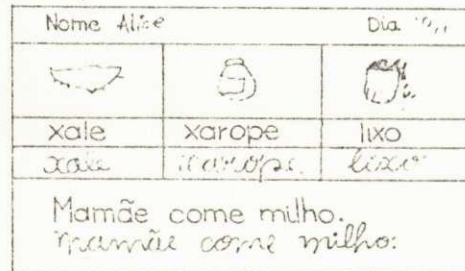 Nome Alice Dia
xale xarope lixo
xale xarope lixo
Mamãe come milho.
mamãe come milho.